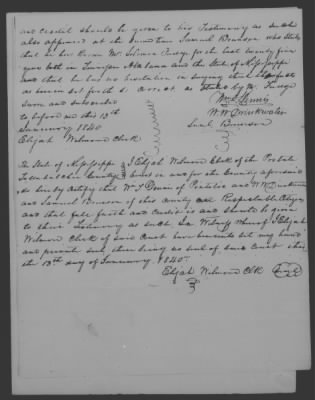 and credit should be given to his Testimony as such
also appeared at the same time Samuel Brunson who states
that he has known Mr. Solomon for the last twenty five
years both in Alabama and the State of Mississippi
and that he has no hesitation in saying that the facts
as herein set forth is correct as stated by Mr.
Sworn and subscribed
to before me this 13th Wm
January 1840 W W Drinkwater
Elijah Welmond Clerk Saml Brunson
The State of Mississippi I Elijah Welmond Clerk of the Probate
County Court in and for the County aforesaid
do hereby certify that Wm of and W W Drinkwater
and Samuel Brunson of this county are Respectable Citizens
and that full faith and credit is and should be given
to their Testimony as such In Witness Whereof I Elijah
Welmond Clerk of said Court have hereunto set my hand
and private seal there being no seal of said Court this
the 13th day of January 1840.
Elijah Welmond Clk seal